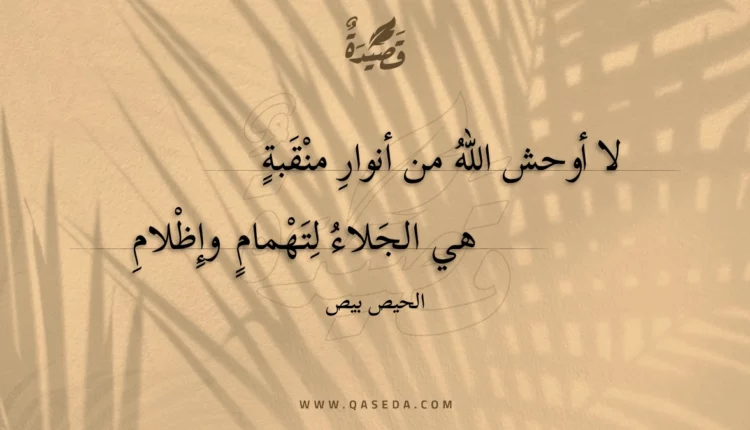 قَصِيدَةٌ
لا أوحش اللهُ من أنوارِ منْقَبةٍ
هي الجَلاءُ لِتَهْمامٍ وإِظْلامِ
الحيص بيص
WWW.QASEDA.COM